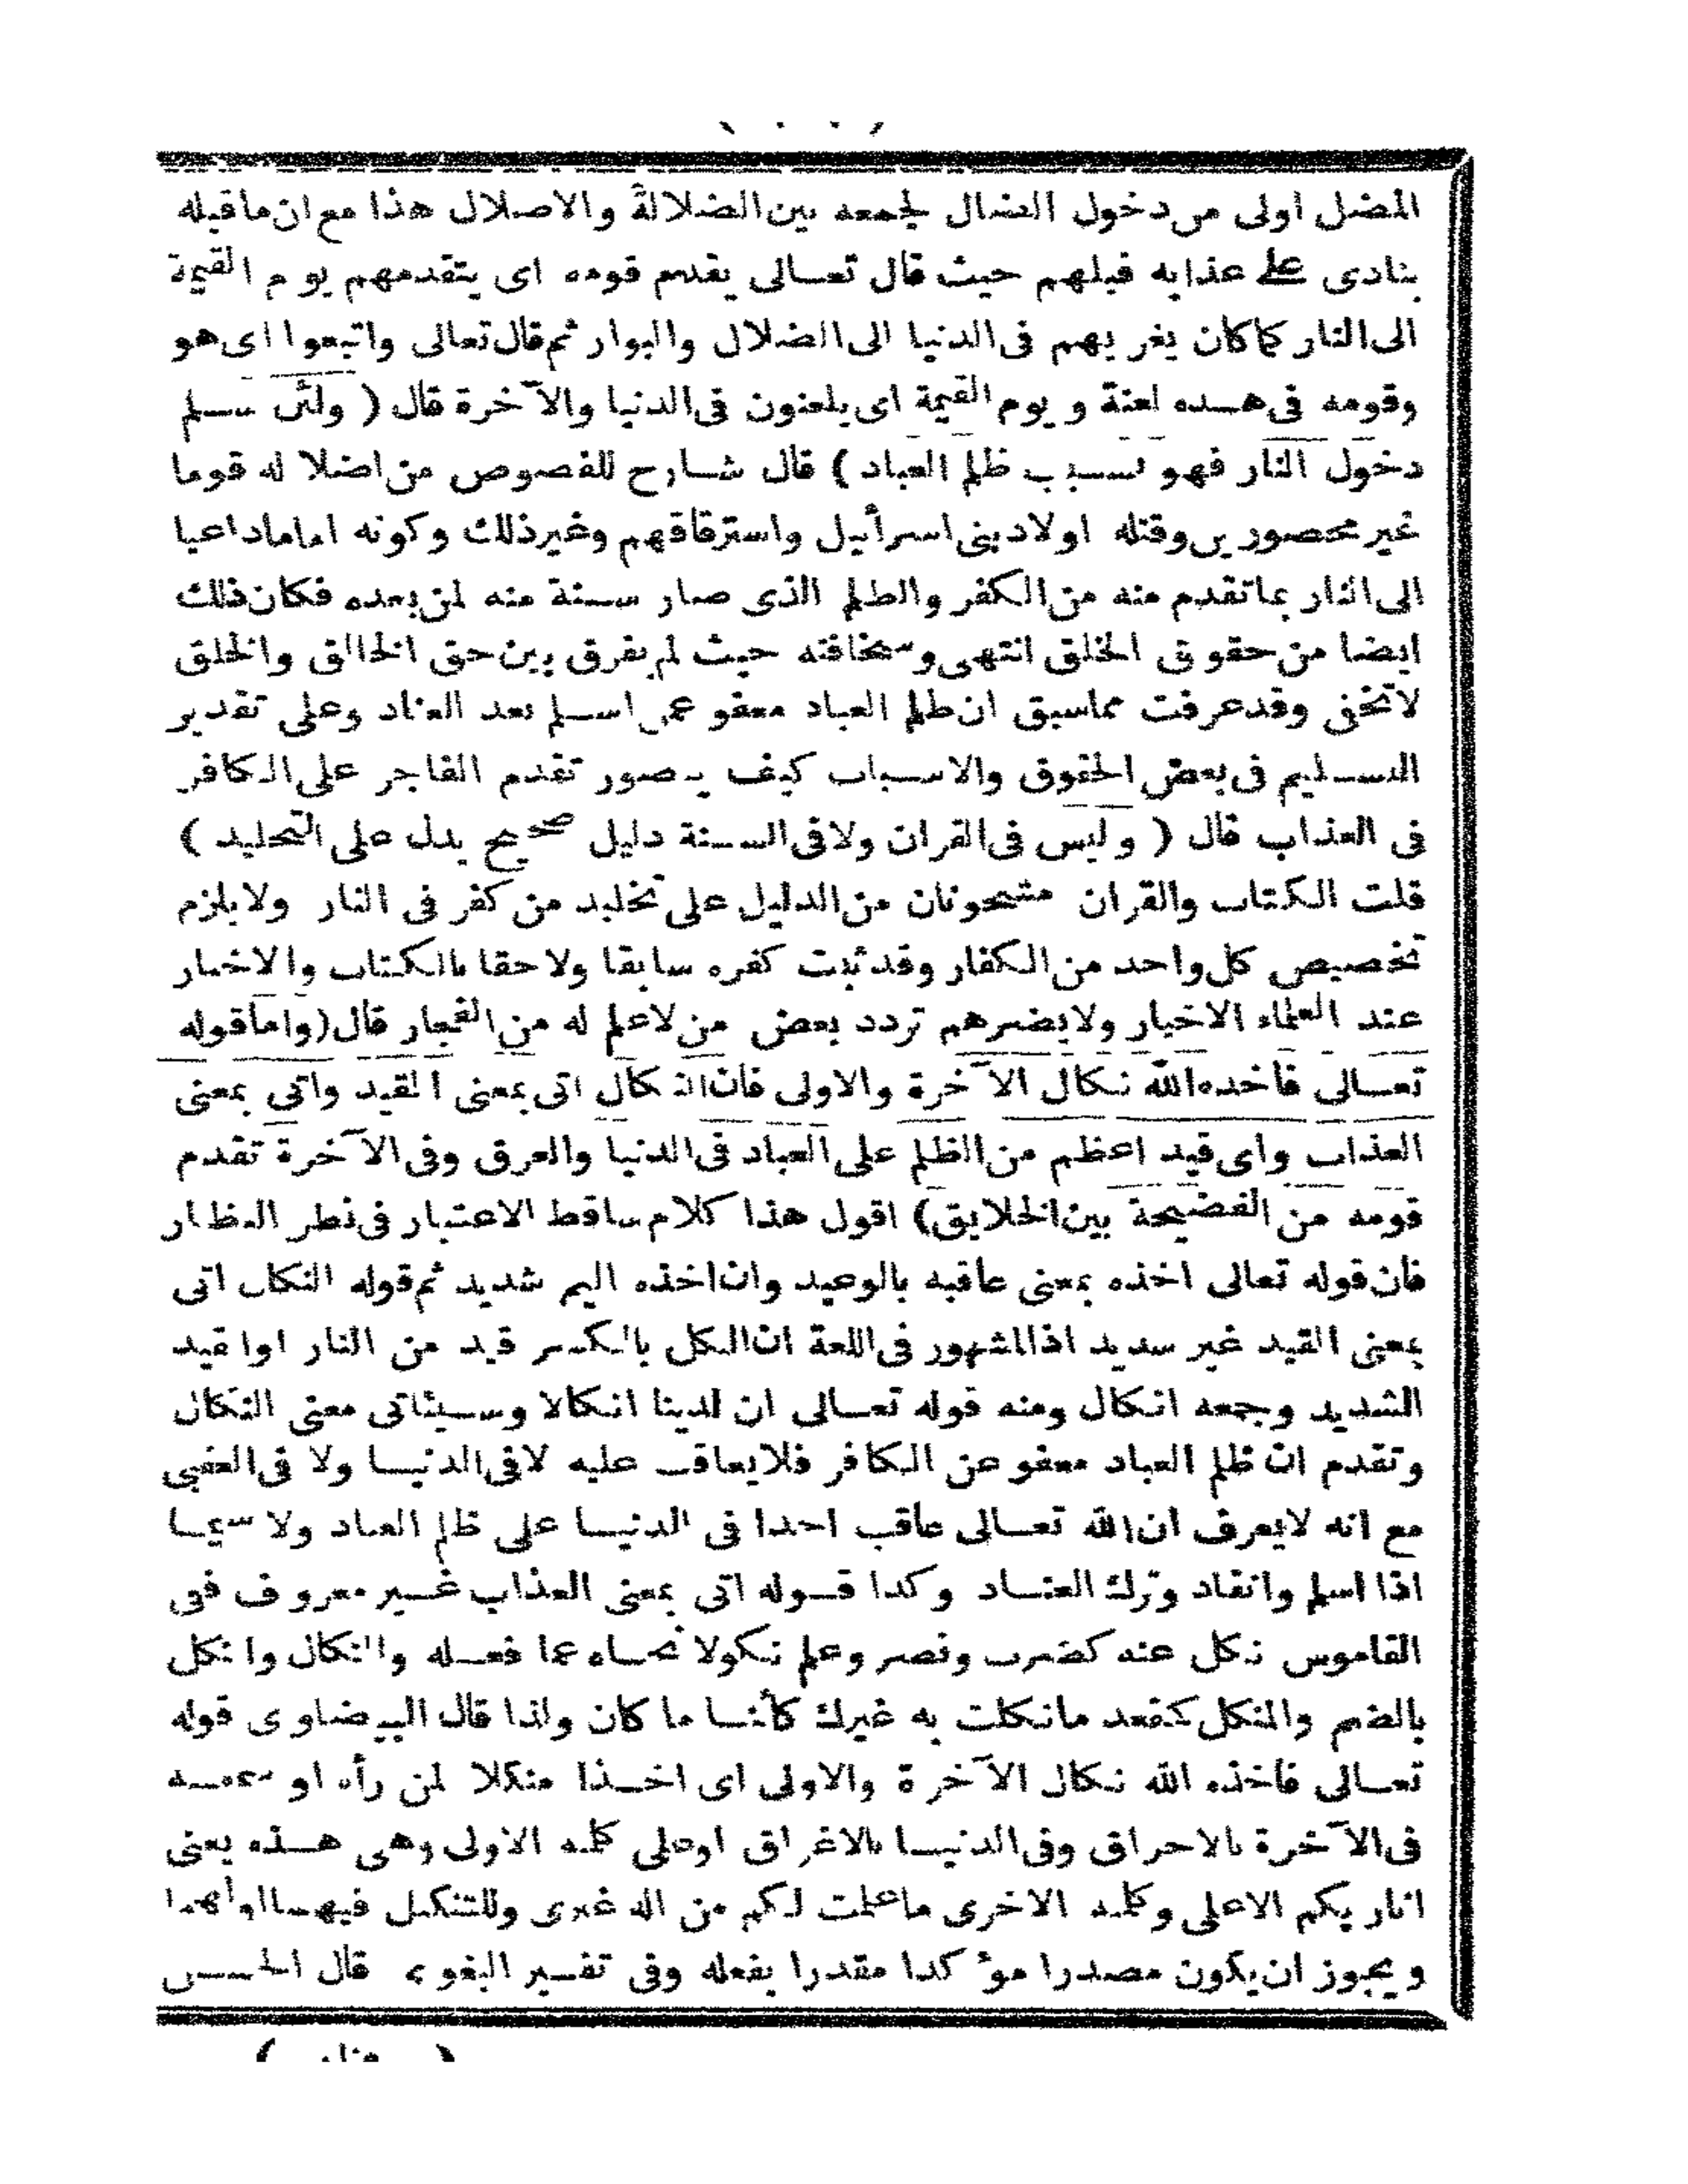 المضل اولى من دخول الضال لجمعه بين الضلالة والاصلال هذا مع ان ماقبله
ينادى على عذابه قبلهم حيث قال تعالى يقدم قومه اى يتقدمهم يوم القيمة
الى النار كماكان يغريهم فى الدنيا الى الضلال والبوار ثم قال تعالى واتبعوا اى هو
وقومه فى هذه لعنة ويوم القيمة اى يلعنون فى الدنيا والآخرة قال ( ولئن سلم
دخول النار فهو بسبب ظلم العباد ) قال شارح للفصوص من اضلا له قوما
غير محصورين وقتله اولاد بنى اسرأيل واسترقاقهم وغيرذلك وكونه اماماداعيا
الى النار بماتقدم منه من الكفر والظلم الذى صار سنة منه لمن بعده فكان ذلك
ايضا من حقوق الخلق انتهى وسخافته حيث لم يفرق بين حق الخالق والخلق
لاتخفى وقدعرفت مماسبق ان ظلم العباد معفو عمن اسلم بعد العناد وعلى تقدير
التسليم فى بعض الحقوق والاسباب كيف يتصور تقدم الفاجر على الكافر
فى العذاب قال ( وليس فى القران ولافى السنة دليل صحيح يدل على التخليد )
قلت الكتاب والقران مشحونان من الدليل على تخليد من كفر فى النار ولايلزم
تخصيص كل واحد من الكفار وقدثبت كفره سابقا ولاحقا بالكتاب والاخبار
عند العلماء الاخيار ولايضرهم تردد بعض من لاعلم له من الفجار قال (واماقوله
تعالى فاخذه الله نكال الآخرة والاولى فان النكال اتى بمعنى القيد واتى بمعنى
العذاب واى قيد اعظم من الظلم على العباد فى الدنيا والعرق وفى الآخرة تقدم
قومه من الفضيحة بين الخلايق) اقول هذا كلام ساقط الاعتبار فى نظر النظار
فان قوله تعالى اخذه بمعنى عاقبه بالوعيد وان اخذه اليم شديد ثم قوله النكال اتى
بمعنى القيد غير سديد اذالمشهور فى اللغة ان النكل بالكسر قيد من النار اوا قيد
الشديد وجمعه انكال ومنه قوله تعالى ان لدينا انكالا وسيئاتى معنى النكال
وتقدم ان ظلم العباد معفو عن الكافر فلايعاقب عليه لافى الدنيا ولا فى العقبى
مع انه لايعرف ان الله تعالى عاقب احدا فى الدنيا على ظلم العباد ولا سيما
اذا اسلم وانقاد وترك العناد وكذا قوله اتى بمعنى العذاب غير معروف ففى
القاموس نكل عنه كضرب ونصر وعلم نكولا نحاه عما فعله والنكال والنكل
بالضم والمنكل كمقعد مانكلت به غيرك كأئنا ما كان ولذا قال البيضاوى قوله
تعالى فاخذه الله نكال الآخرة والاولى اى اخذا منكلا لمن رأه او سمعه
فى الآخرة بالاحراق وفى الدنيا بالاغراق اوعلى كلمه الاولى وهى هذه يعنى
انار بكم الاعلى وكلمه الاخرى ماعلمت لكم من اله غيرى وللتنكيل فيهما اولهما
ويجوز ان يكون مصدرا مؤكدا مقدرا بفعله وفى تفسير البغوى قال الحسن